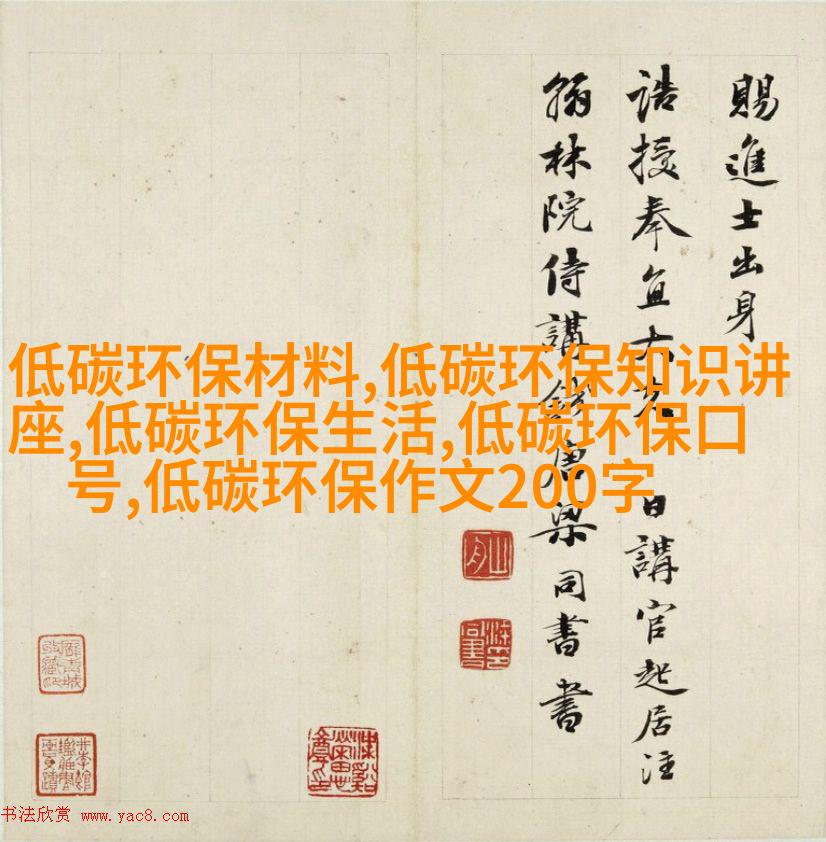 賜進士出身
誥授奉直大夫 日講官起居注
翰林院侍講錢唐梁同書書
低碳环保材料,低碳环保知识讲
座,低碳环保生活,低碳环保口
号,低碳环保作文200字
书法欣赏 www.yac8.com